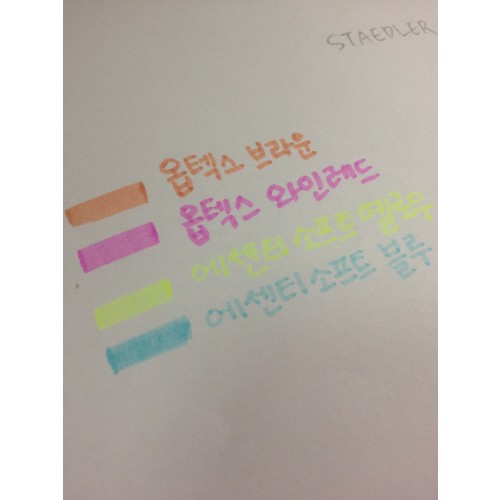 STAEDLER
옵텍스 브라운
옵텍스 와인레드
에센티 소프트 옐로우
에센티 소프트 블루